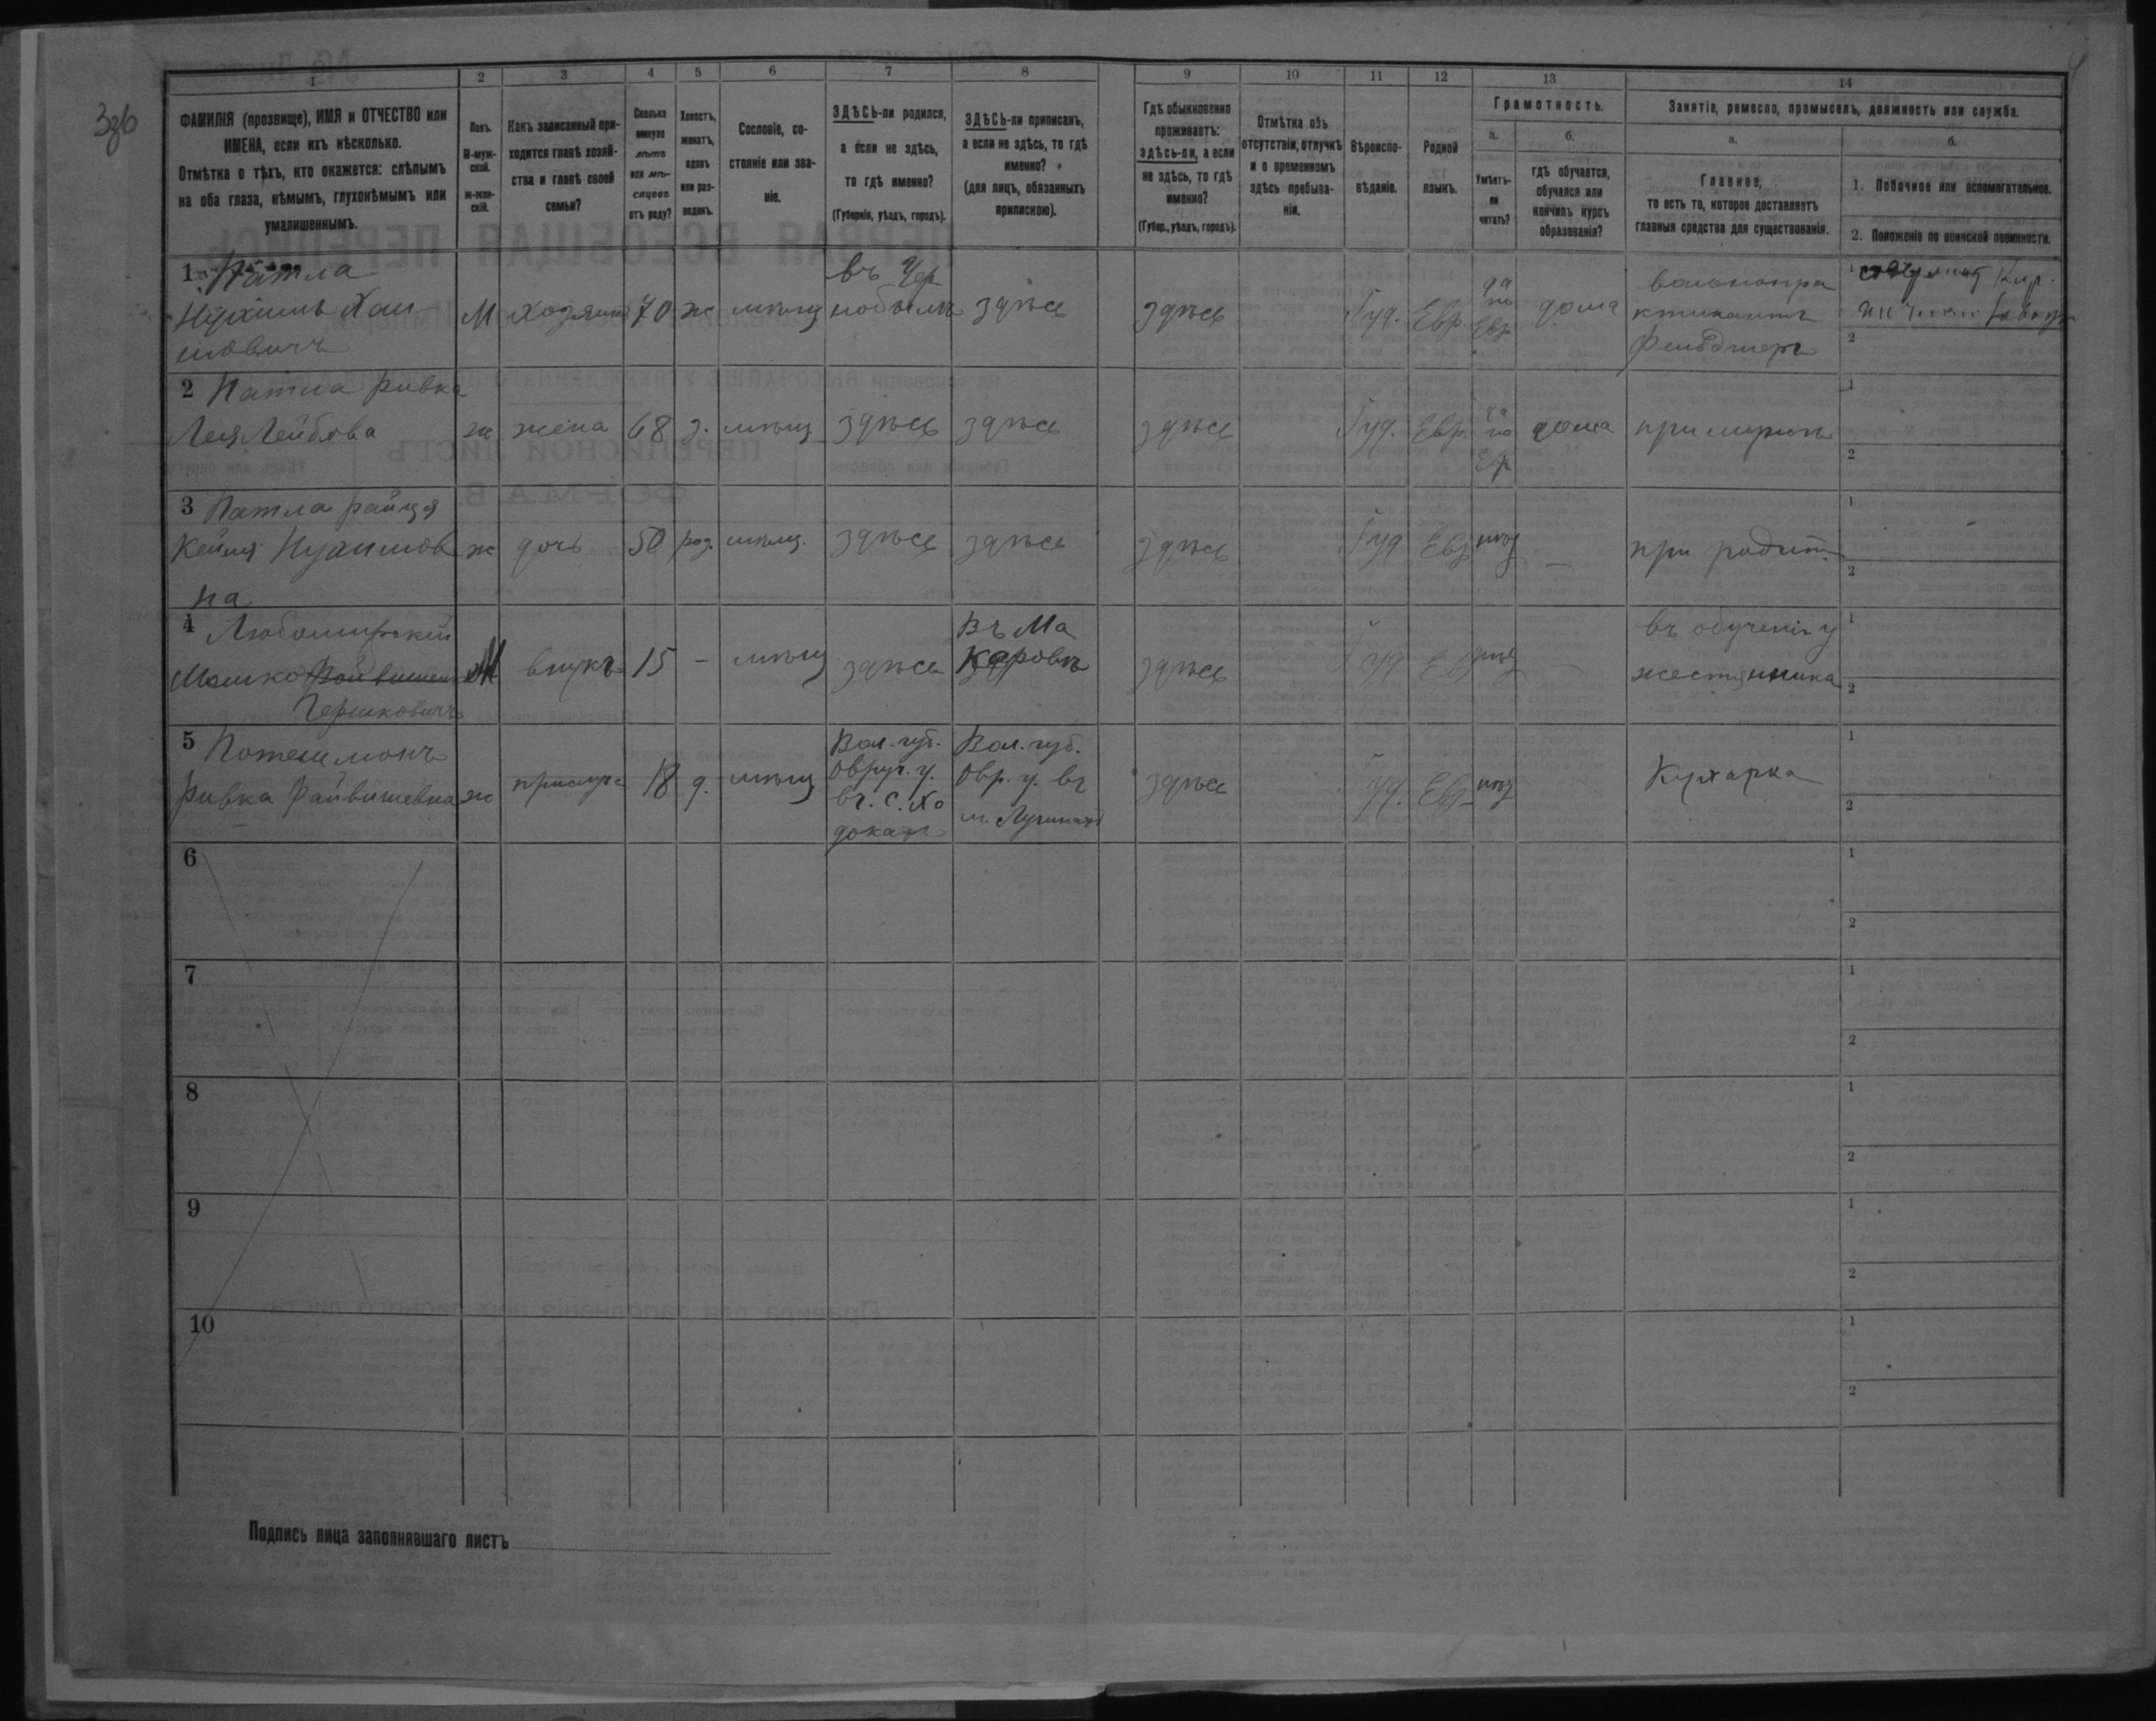 1 2 3 4 5 6 7 8 9 10 11 12 13 14
326
ФАМИЛІЯ (прозвище), ИМЯ и ОТЧЕСТВО или
ИМЕНА, если ихъ нѣсколько.
Отмѣтка о тѣхъ, кто окажется: слѣпымъ
на оба глаза, нѣмымъ, глухонѣмымъ или
умалишеннымъ.
Полъ.
М-муж-
ской.
ж-жен-
скій.
Какъ записанный при-
ходится главѣ хозяй-
ства и главѣ своей
семьи?
Сколько
минуло
лѣтъ
или мѣ-
сяцевъ
отъ роду?
Холостъ,
женатъ,
вдовъ
или раз-
веденъ.
Сословіе, со-
стояніе или зва-
ніе.
ЗДѢСЬ-ли родился,
а если не здѣсь,
то гдѣ именно?
(Губернія, уѣздъ, городъ).
ЗДѢСЬ-ли приписанъ,
а если не здѣсь, то гдѣ
именно?
(для лицъ, обязанныхъ
припискою).
Гдѣ обыкновенно
проживаетъ:
здѣсь-ли, а если
не здѣсь, то гдѣ
именно?
(Губер., уѣздъ, городъ).
Отмѣтка объ
отсутствіи, отлучкѣ
и о временномъ
здѣсь пребыва-
ніи.
Вѣроиспо-
вѣданіе.
Родной
языкъ.
Грамотность.
а.
Умѣетъ-
ли
читать?
б.
гдѣ обучается,
обучался или
кончилъ курсъ
образованія?
Занятіе, ремесло, промыселъ, должность или служба.
а.
Главное,
то есть то, которое доставляетъ
главныя средства для существованія.
б.
1. Побочное или вспомогательное.
2. Положеніе по воинской повинности.
1 Патла
Нухимъ Хаи
мовичъ
М хозяинъ 70 ж мѣщ
въ Чер
нобылѣ
здѣсь здѣсь Іуд. Евр
да
по
Евр
дома
вольнопра
ктикантъ
фельдшеръ
1
2
2 Патла Ривка
Лея Лейбова
ж жена 68 з. мѣщ здѣсь здѣсь здѣсь Іуд. Евр.
да
по
Ев
дома при мужѣ
1
2
3 Патла Райця
Нухимов
на
ж дочь 50 раз. мѣщ. здѣсь здѣсь здѣсь Іуд Евр нѣт — при родит.
1
2
4 Любомирскій
Мошко
Гершковичъ
М внукъ 15 - мѣщ здѣсь
Въ Ма
каровѣ
здѣсь Іуд Ев нѣт —
въ обученіи у
жестянника
1
2
5
Ривка Райвишевна
ж прислуга 18 д. мѣщ
Вол. губ.
Овруч. у.
въ с. Хо
дока
Вол. губ.
Овр. у. въ
м. Лугинахъ
здѣсь Іуд. Евр нѣт Кухарка
1
2
6
1
2
7
1
2
8
1
2
9
1
2
10
1
2
Подпись лица заполнявшаго листъ